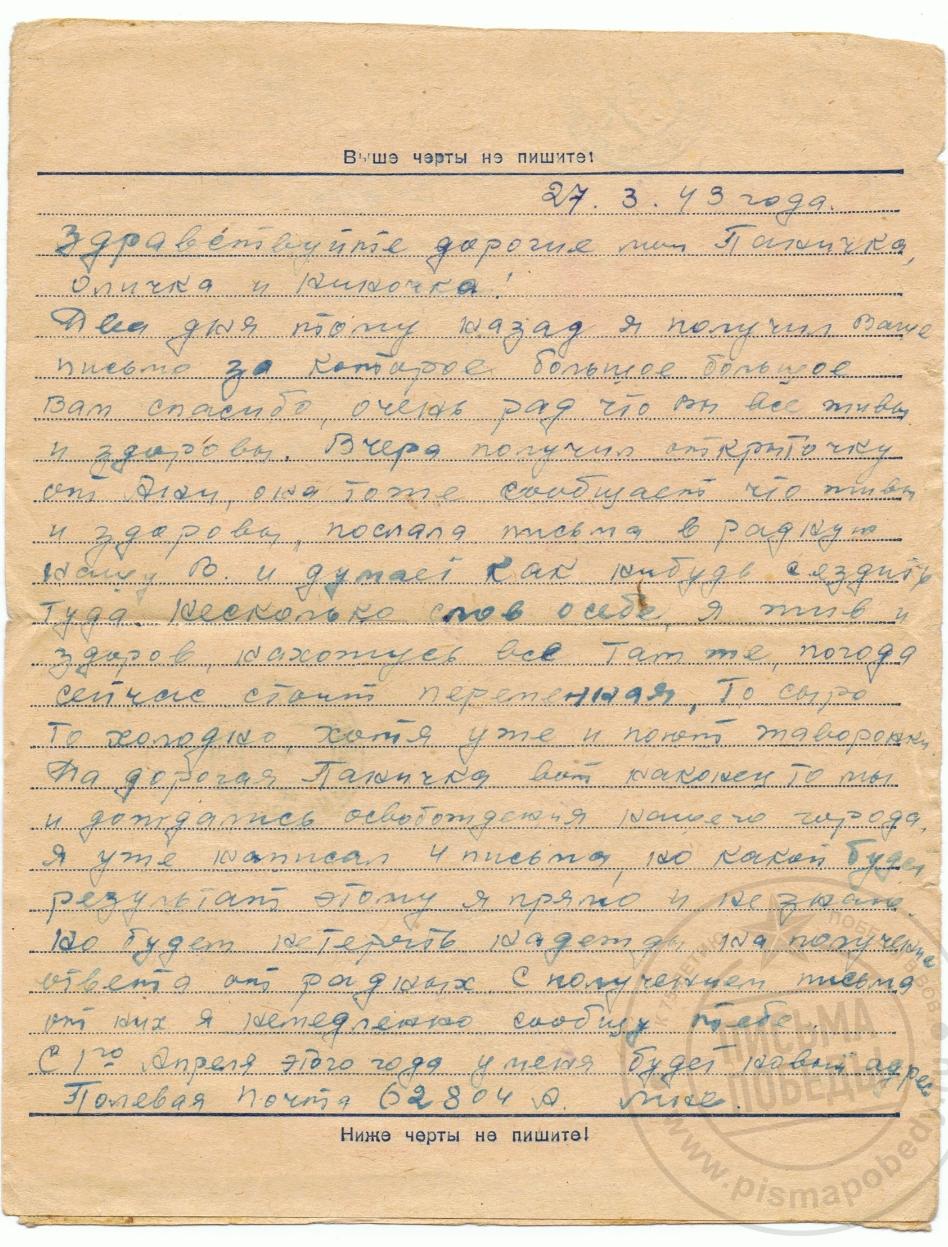 Выше черты не пишите!
27. 3. 43 года.
Здравствуйте дорогие мои Паничка,
Оличка и Ниночка!
Два дня тому назад я получил Ваше
письмо за которое большое большое
Вам спасибо, очень рад что вы все живы
и здоровы. Вчера получил открыточку
от Ани, она тоже сообщает что живы
и здоровы, послала письма в радную
нашу В и думает как нибудь сяздить
туда. Несколько слов осебе, я жив и
здоров, нахожусь все там же, погода
сейчас стоит переменная, то сыро
то холодно, хотя уже и поют жаворонки.
Да дорогая Паничка вот наконец то мы
и дождались освобождения нашего города.
Я уже написал 4 письма, но какой будет
результат этому я прямо и незнаю.
Но будем нетерять надежды на получение
ответа от радных. С получением письма
от них я немедленно сообщу тебе.
С 1го Апреля этого года у меня будет новый адрес
Полевая почта 62804 А. мне.
Ниже черты не пишите!
ПИСЬМА
ПОБЕДЫ
www.pismapobedy